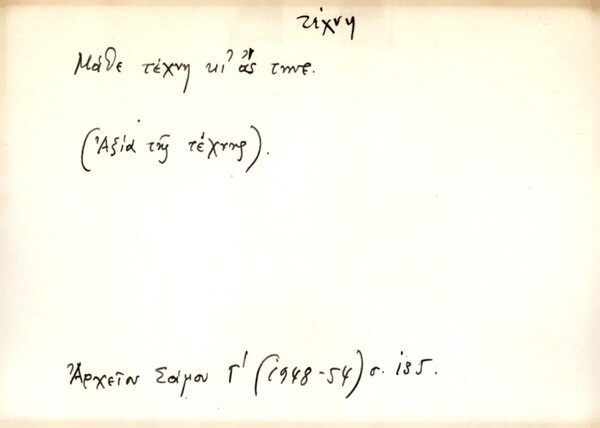 τέχνη
Μάθε τέχνη κι' ἄς τηνε.
(Ἀξία τῆς τέχνης).
Ἀρχεῖον Σάμου Γ' (1948-54) σ. 135.